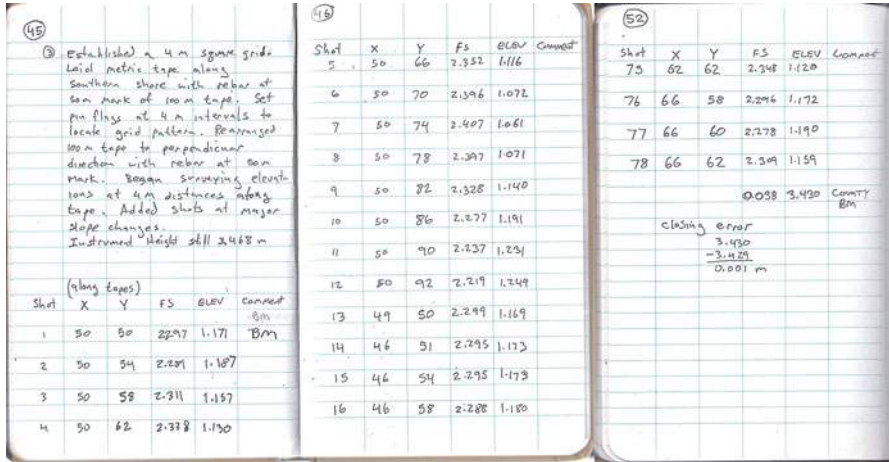 45
③ Established a 4 m square grid.
Laid metric tape along
Southern shore with rebar at
50m mark of 100m tape. Set
pin flags at 4 m intervals to
locate grid pattern. Rearranged
100 m tape to perpendicular
direction with rebar at 50m
mark. Began surveying elevat-
ions at 4m distances along
tape. Added shots at major
slope changes.
Instrument Height still 3.468 m
(along tapes)
Shot X Y FS ELEV Comment
BM
1 50 50 2.297 1.171 BM
2 50 54 1.187
3 50 58 2.311 1.157
4 50 62 2.338 1.130
46
Shot X Y FS ELEV Comment
5 50 66 2.352 1.116
6 50 70 2.396 1.072
7 50 74 2.407 1.061
8 50 78 2.397 1.071
9 50 82 2.328 1.140
10 50 86 2.277 1.191
11 50 90 2.237 1.231
12 50 92 2.219 1.249
13 49 50 2.299 1.169
14 46 51 2.295 1.173
15 46 54 2.295 1.173
16 46 58 2.288 1.180
52
Shot X Y FS ELEV Comment
75 62 62 2.348 1.120
76 66 58 2.296 1.172
77 66 60 2.278 1.190
78 66 62 2.309 1.159
0.038 3.430 County
BM
closing error
3.430
-3.429
0.001 m